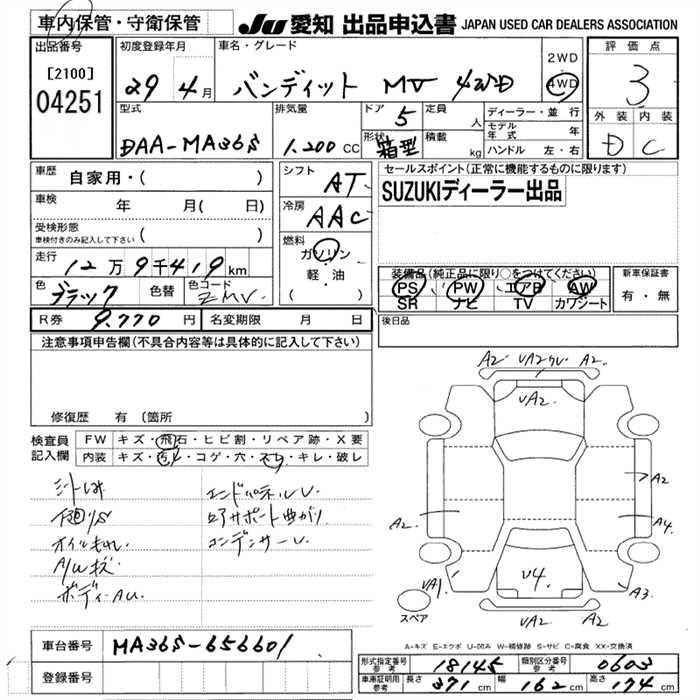 車内保管・守衛保管
JU 愛知 出品申込書 JAPAN USED CAR DEALERS ASSOCIATION
出品番号
[2100]
04251
初度登録年月
29年4月
車名・グレード
バンディット MV 4WD
2WD
4WD
評価点
3
外装 内装
D C
型式
DAA-MA36S
排気量
1.200 CC
ドア 5
形状 箱型
定員 人
積載 kg
ディーラー・並行
モデル年式 年
ハンドル 左・右
車歴 自家用・( )
車検 年 月( 日)
受検形態
車検付きのみ記入して下さい ( )
走行 12万9千419km
色 ブラック 色替 色コード ZMV
シフト AT
冷房 AAC
燃料
ガソリン
軽・油
( )
セールスポイント(正常に機能するものに限ります)
SUZUKIディーラー出品
装備品(純正品に限り○をつけてください)
PS PW エアB AW
SR ナビ TV カワシート
新車保証書
有・無
R券 9.770円 名変期限 月 日
後日品
注意事項申告欄(不具合内容等は具体的に記入して下さい)
修復歴 有(箇所 )
検査員
記入欄
FW キズ・飛石・ヒビ割・リペア跡・X要
内装 キズ・汚レ・コゲ・穴・スレ・キレ・破レ
シートしみ
下廻リS
オイルもれ
A/Wキズ
ボディーAU
エンドパネルU
コアサポート曲がり
コンデンサーU
A2 UA2 A2
UA2
A2
A2
A4
UA1
U4
A3
スペア
UA2 A2
A-キズ E-エクボ U-凹み W-補修跡 S-サビ C-腐食 XX-交換済
車台番号 MA36S-656601
登録番号
形式指定番号 参考 18145 類別区分番号 参考 0603
車庫証明用 参考 長さ 371cm 幅 162cm 高さ 174cm